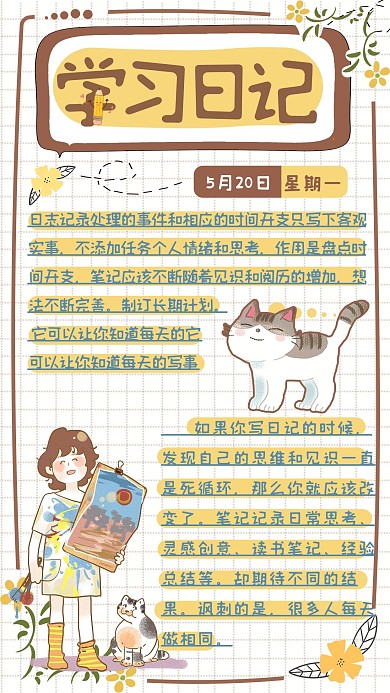 学习日记
5月20日 星期一
日志记录处理的事件和相应的时间开支只写下客观
实事，不添加任务个人情绪和思考，作用是盘点时
间开支，笔记应该不断随着见识和阅历的增加，想
法不断完善。制订长期计划。
它可以让你知道每天的它
可以让你知道每天的写事
如果你写日记的时候，
发现自己的思维和见识一直
是死循环，那么你就应该改
变了。笔记记录日常思考、
灵感创意、读书笔记、经验
总结等。却期待不同的结
果。讽刺的是，很多人每天
做相同。